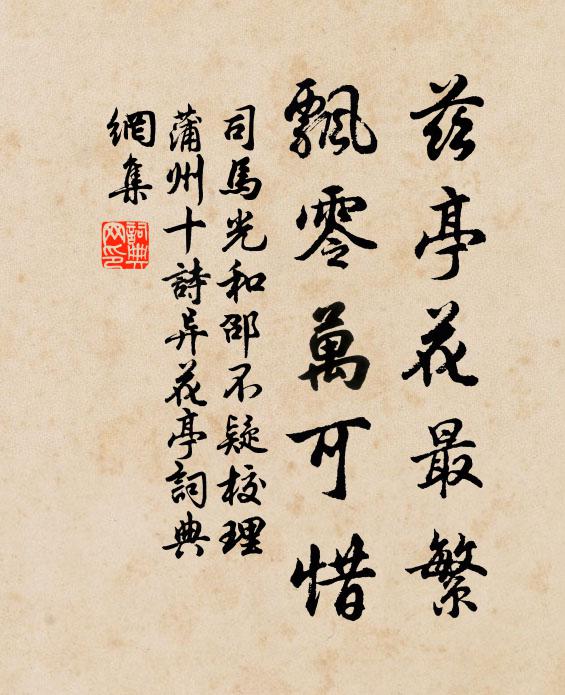 茲亭花最繁
飄零萬可惜
司馬光和邵不疑校理
蒲州十詩异花亭詞典
網集
詞典
网印